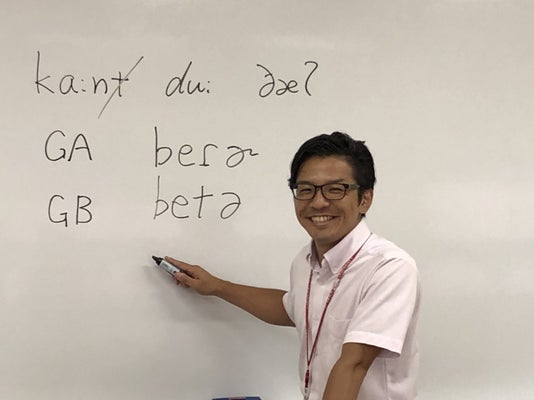 ka:nt du: ðæʔ
GA beɾɚ
GB betə